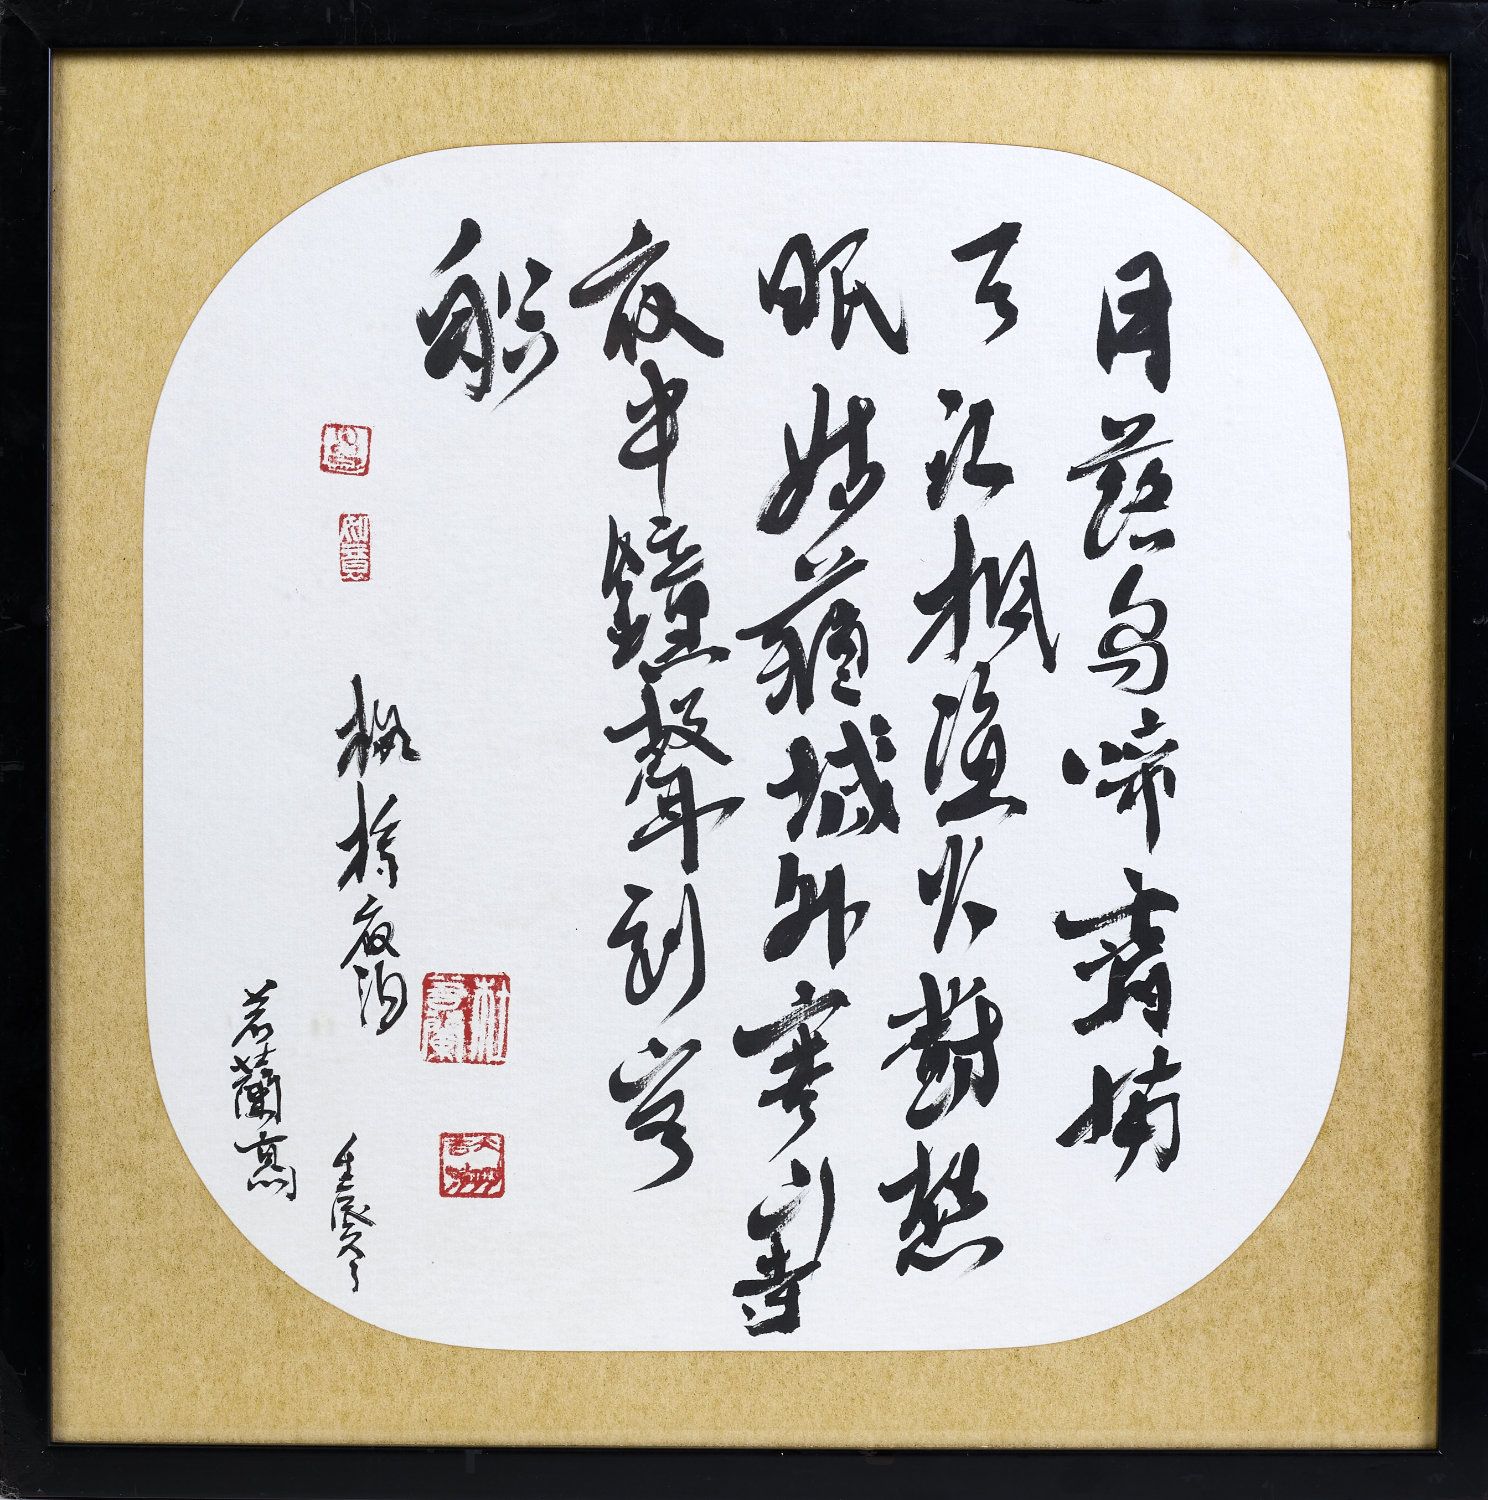 月落烏啼霜滿
天江楓漁火對愁
眠姑蘇城外寒山寺
夜半鐘聲到客
船
如意
楓橋夜泊 壬辰冬
若蘭
杜若蘭